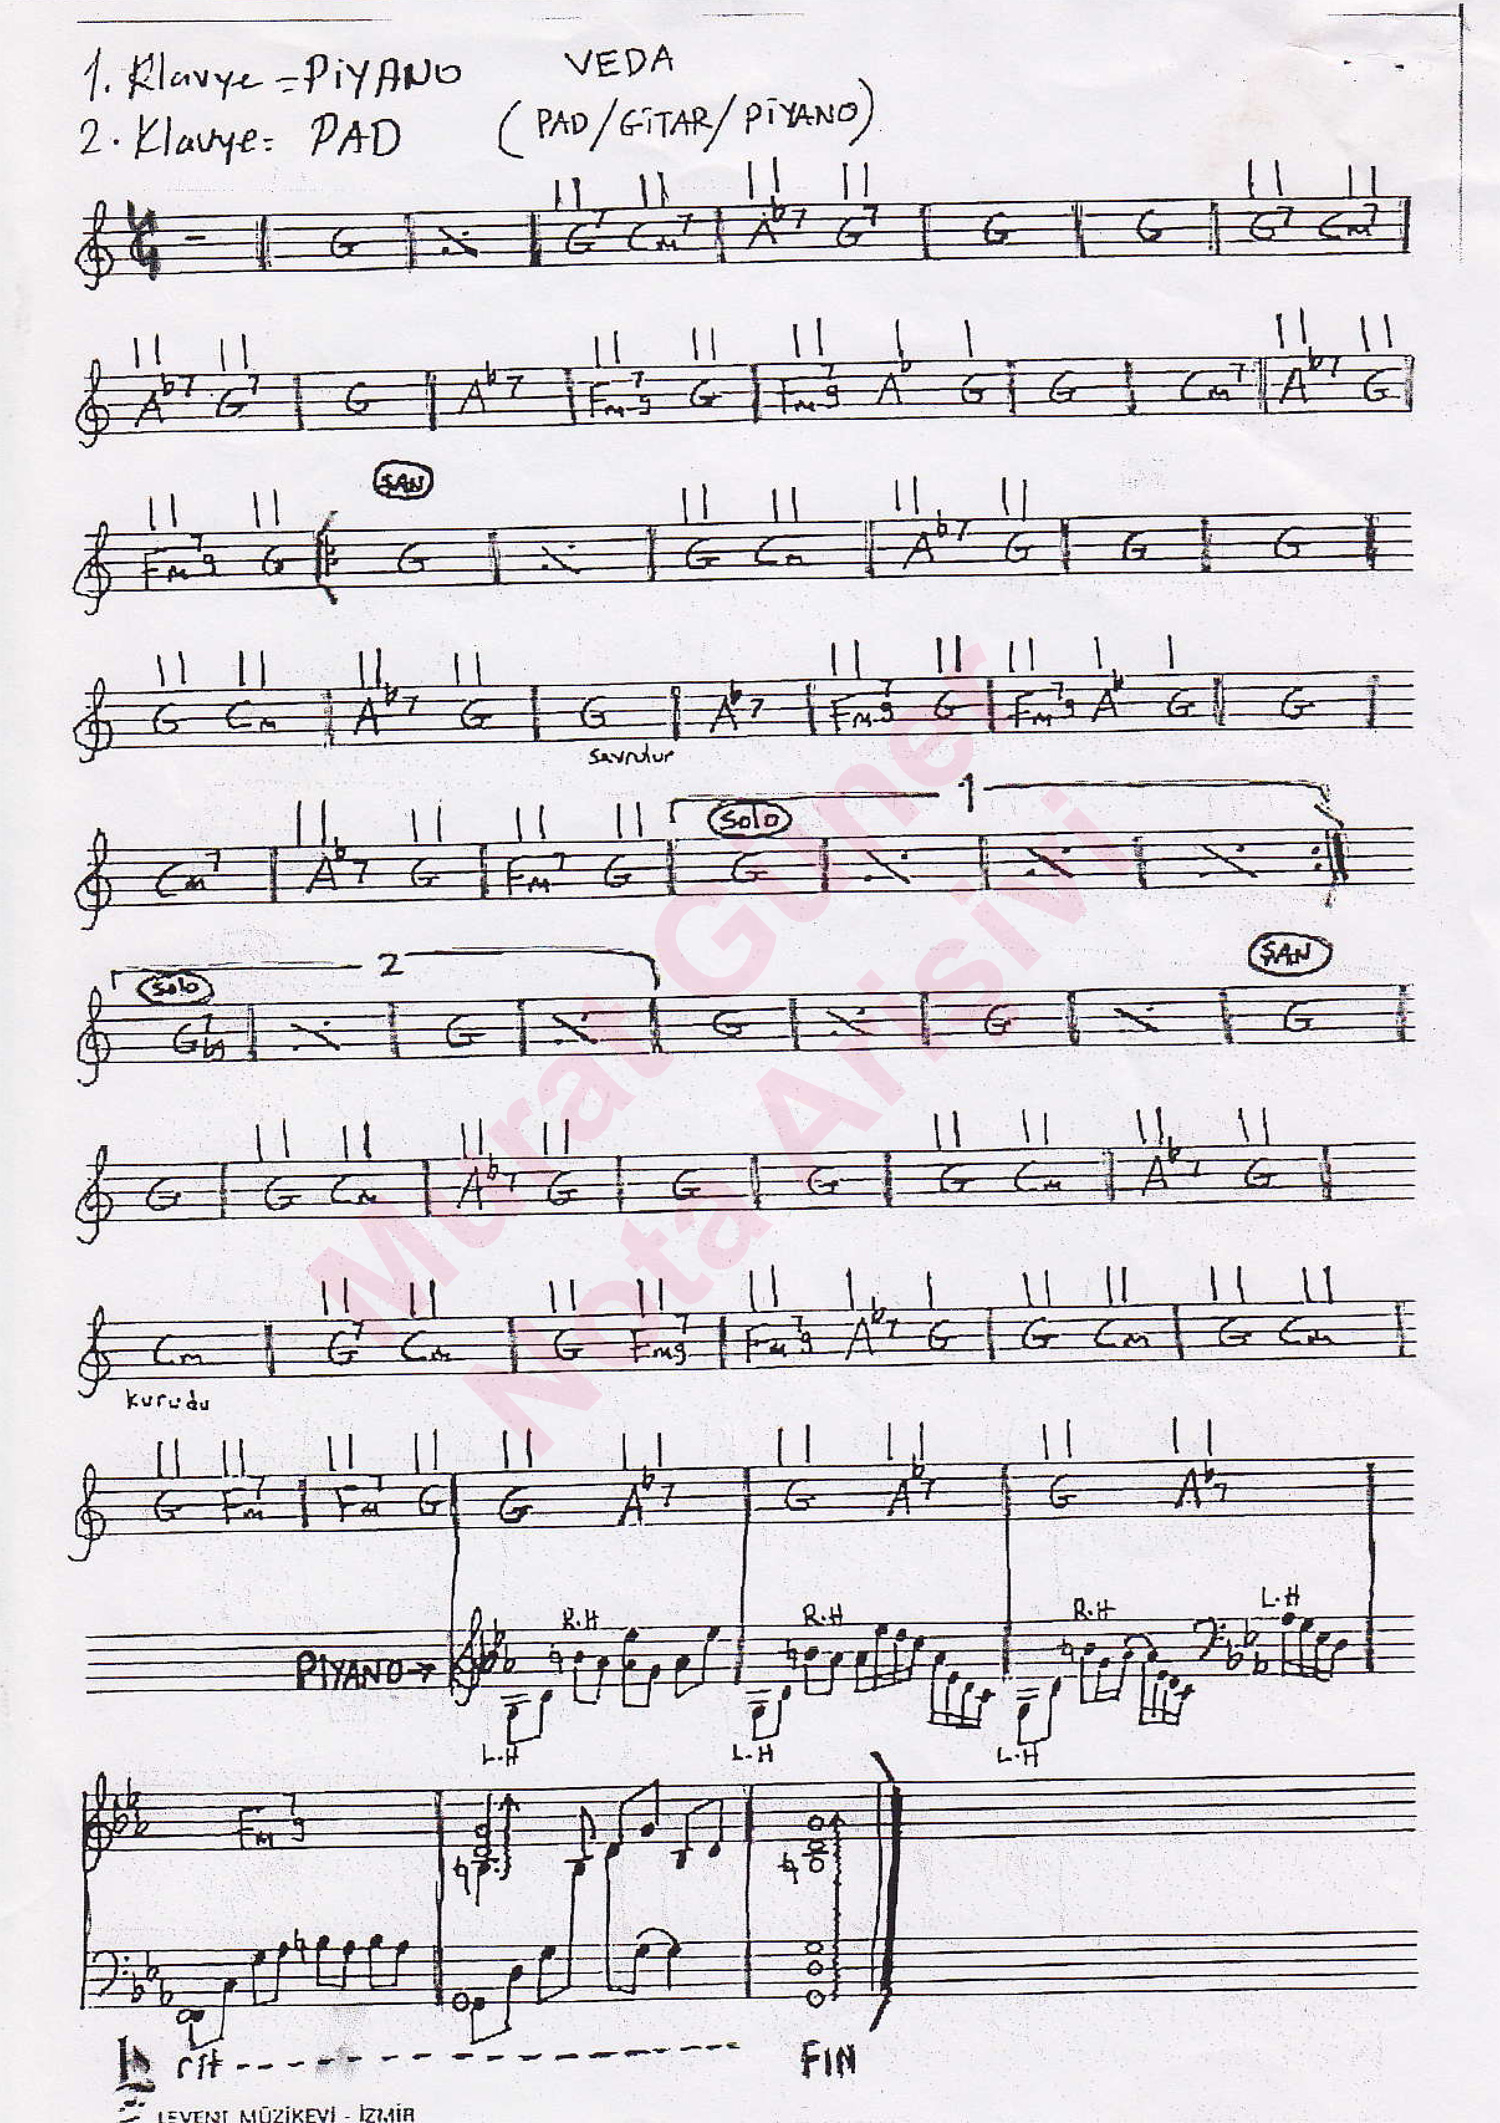 1. Klavye = PiYANO VEDA
2. Klavye: PAD (PAD/GiTAR/PiYANO)
G G7 Cm7 Ab7 G7 G G G7 Cm7
Ab7 G7 G Ab7 Fm7 9 G Fm7 9 Ab G G Cm7 Ab7 G
ŞAN
Fm7 9 G G G Cm Ab7 G G G
G Cm Ab7 G G Ab7 Fm7 9 G Fm7 9 Ab G G
Savrulur
1
Solo
Cm7 Ab7 G Fm7 G G
2
Solo ŞAN
G7b9 G G G G
G G Cm Ab7 G G G G Cm Ab7 G
Cm G7 Cm G Fm7 9 Fm7 9 Ab7 G G Cm G Cm
kurudu
G Fm7 Fm7 G G Ab7 G Ab7 G Ab7
R.H R.H R.H L.H
PiYANO→
L.H L.H L.H
Fm7 9
rit FIN
LEVENT MÜZİKEVİ - İZMİR
Murat Güner
Nota Arisivi